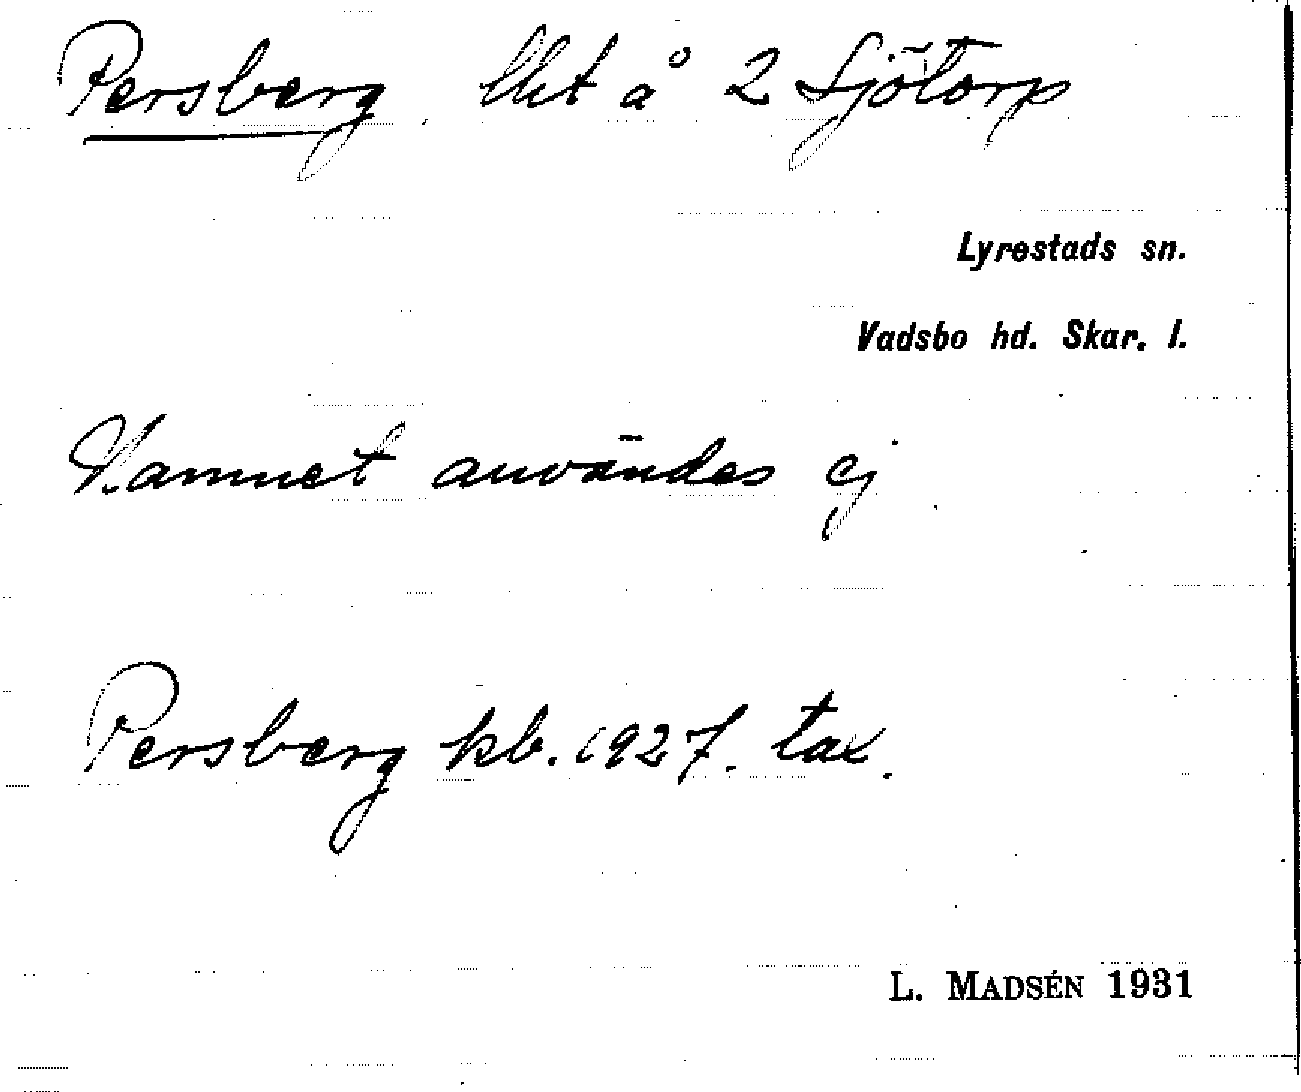 Persberg. lht å 2 Sjötorp
Lyrestads sn.
Vadsbo hd. Skar. l.
Namnet användes ej
Persberg kb. 1927. tax.
L. MADSÉN 1931